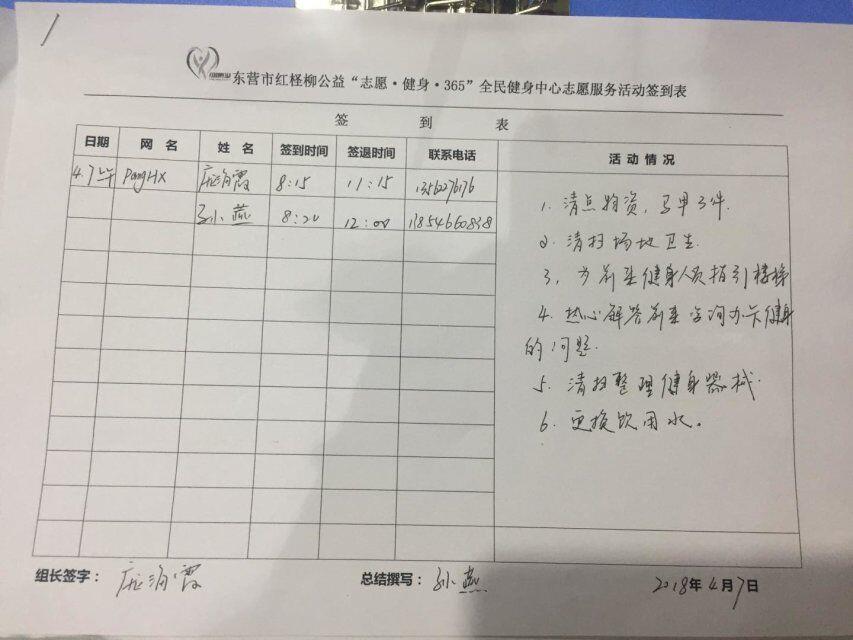 东营市红柽柳公益“志愿·健身·365”全民健身中心志愿服务活动签到表
签 到 表
日期 网 名 姓 名 签到时间 签退时间 联系电话 活 动 情 况
4.7上午 PangHX 霞 8:15 11:15
孙燕 8:20 12:00
1. 清点物资,马甲3件.
2. 清扫场地卫生.
3, 为前来健身人员指引楼梯
4. 热心解答前来咨询办卡健身
的问题.
5. 清扫整理健身器械.
6. 更换饮用水。
组长签字: 霞 总结撰写: 孙燕 2018年4月7日